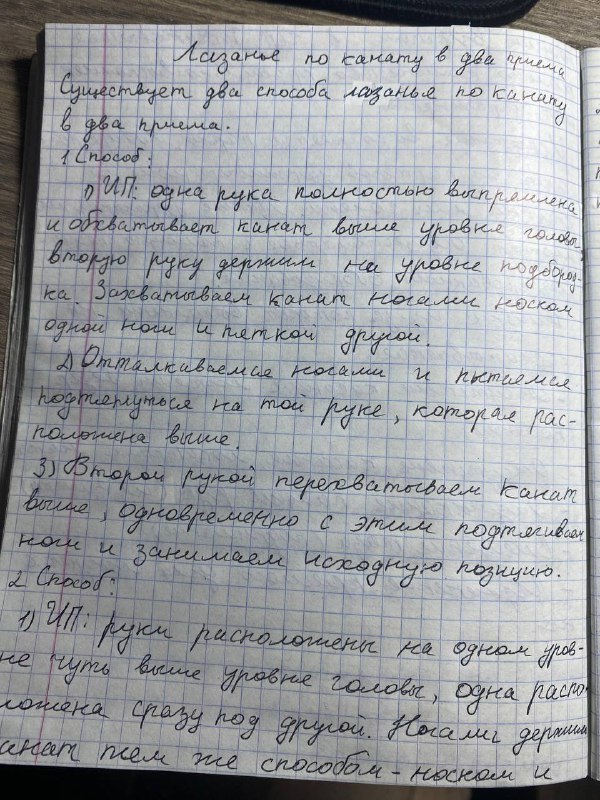 Лазанье по канату в два приема
Существует два способа лазанья по канату
в два приема.
1 Способ:
1) ИП: одна рука полностью выпрямлена
и обхватывает канат выше уровня головы,
вторую руку держим на уровне подбород-
ка. Захватываем канат ногами носком
одной ноги и пяткой другой.
2) Отталкиваемся ногами и пытаемся
подтянуться на той руке, которая рас-
положена выше.
3) Второй рукой перехватываем канат
выше, одновременно с этим подтягиваем
ноги и занимаем исходную позицию.
2 Способ:
1) ИП: руки расположены на одном уров-
не чуть выше уровня головы, одна распо-
ложена сразу под другой. Ногами держим
канат тем же способом - носком и